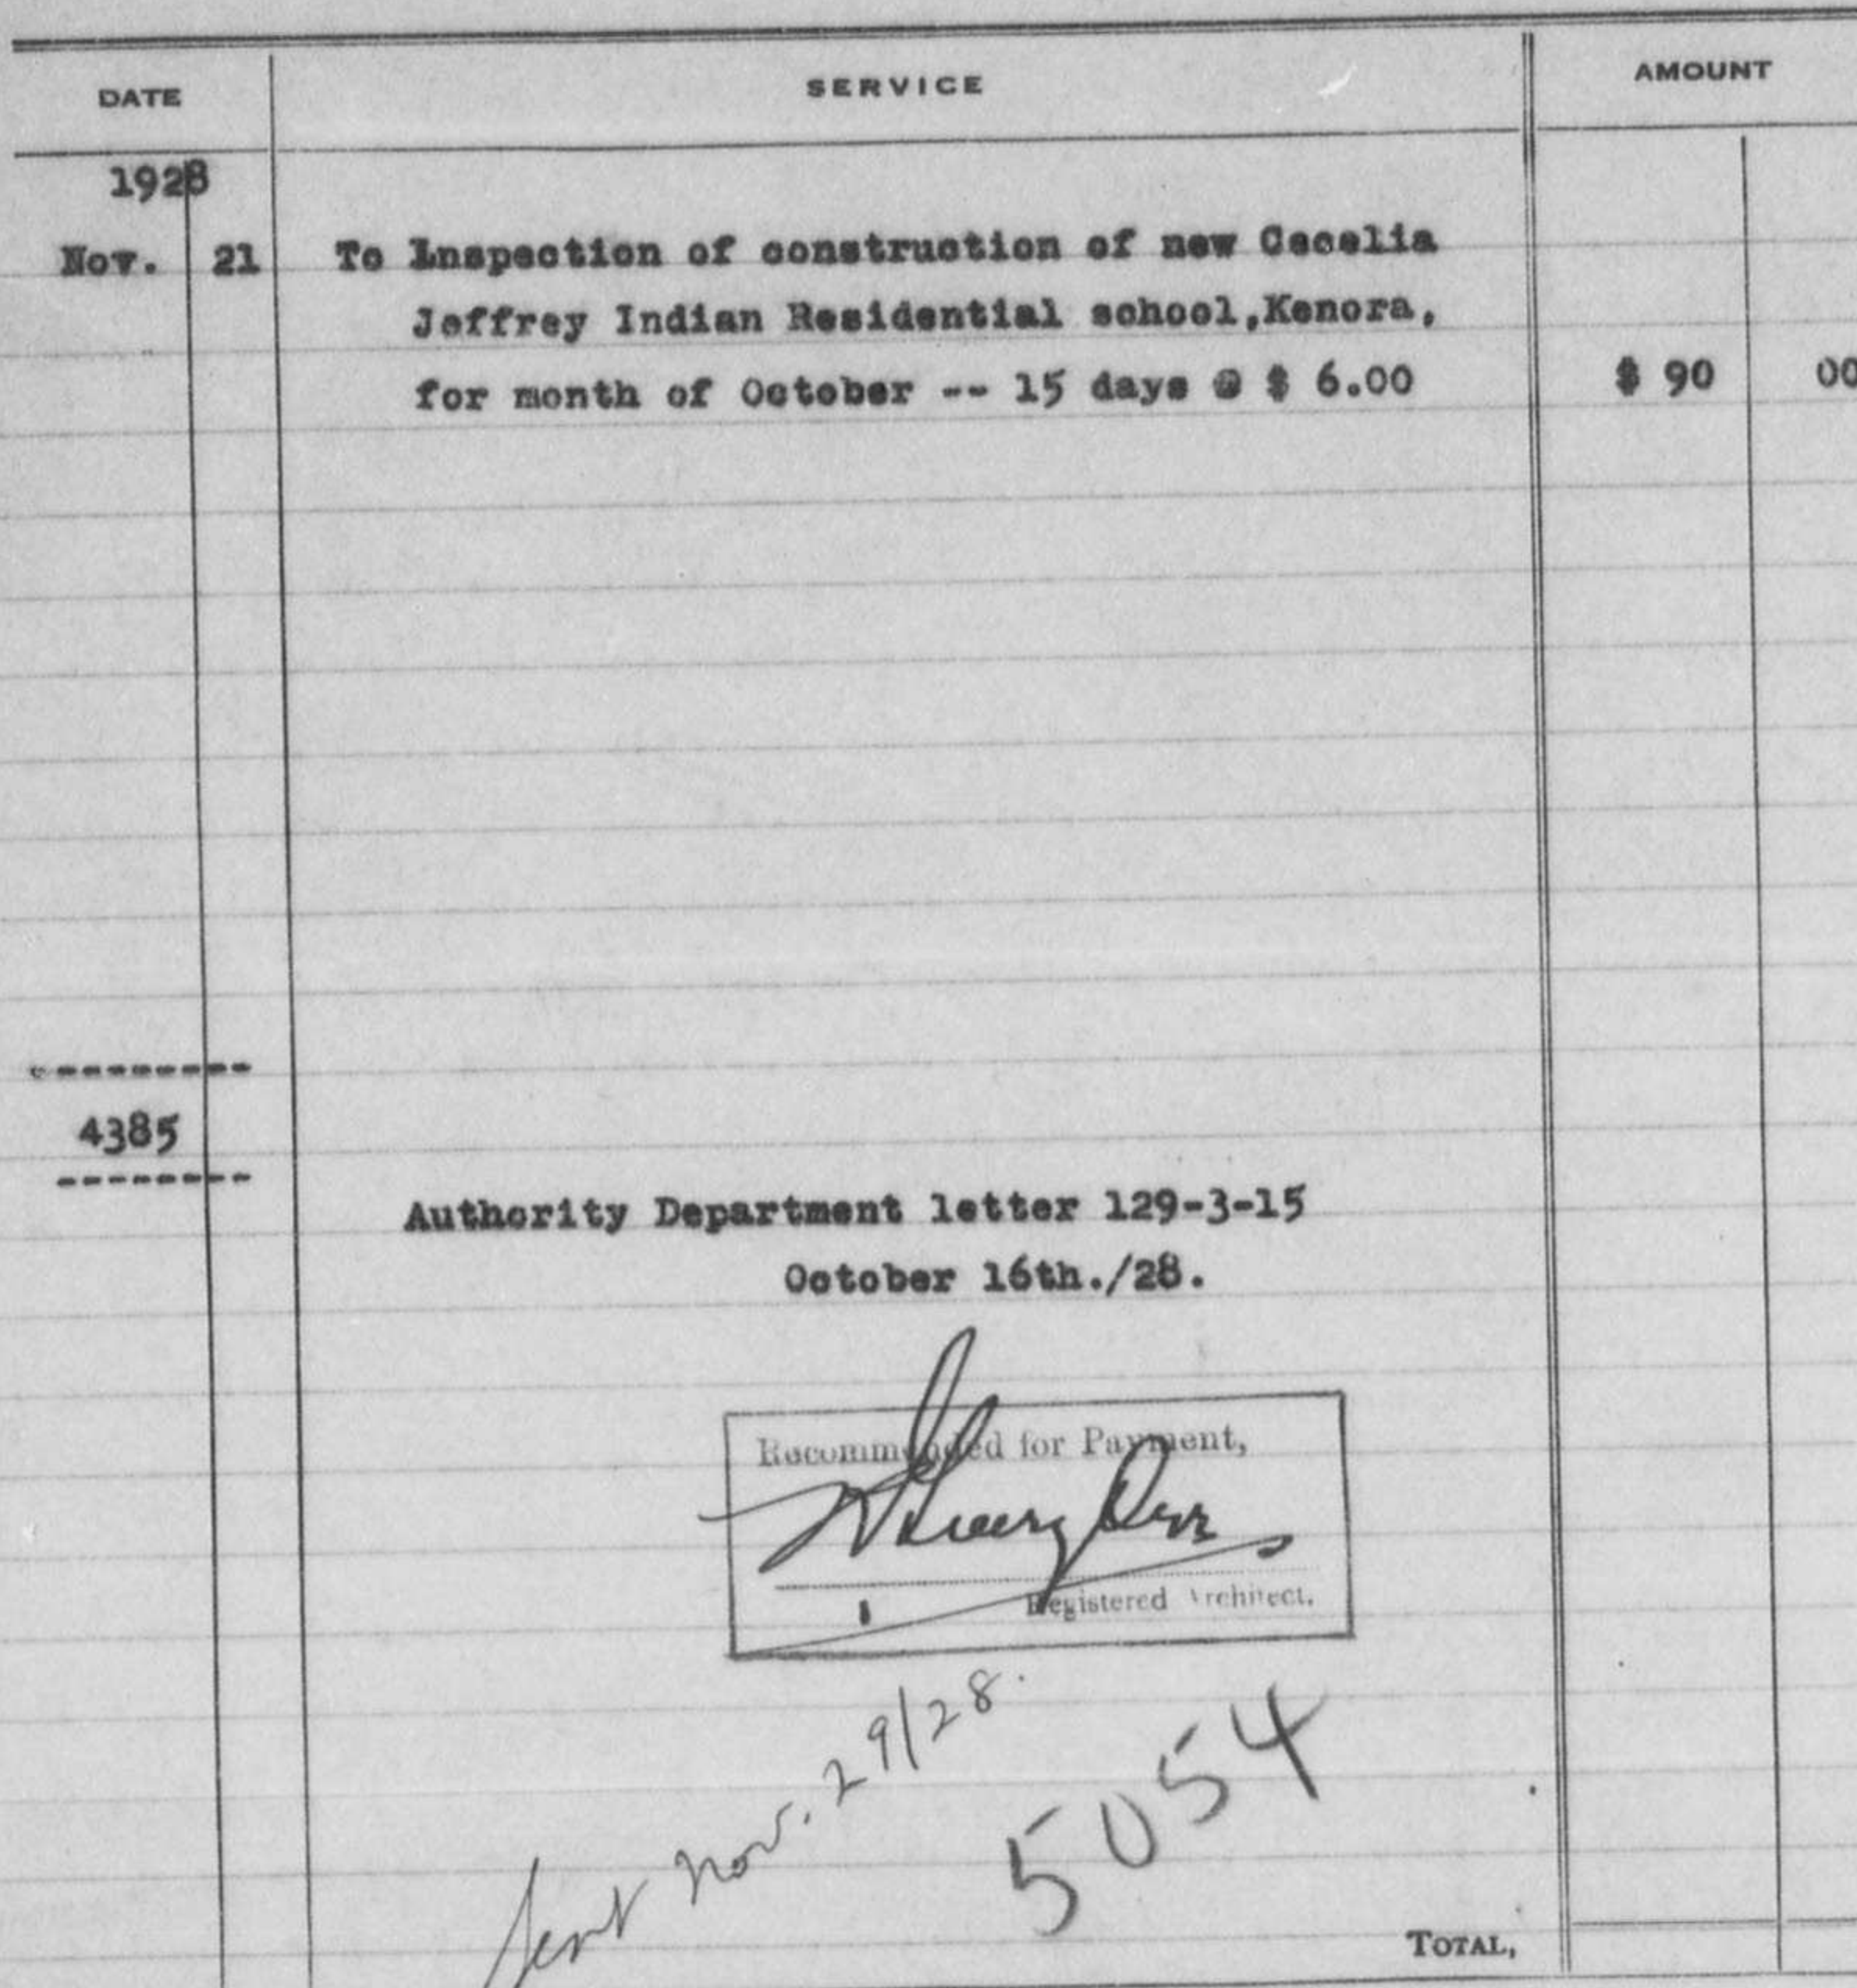 DATE SERVICE AMOUNT
1928
Nov. 21 To Inspection of construction of new Cecelia
Jeffrey Indian Residential school,Kenora,
for month of October -- 15 days @ $ 6.00 $ 90 00
---------
4385
--------
Authority Department letter 129-3-15
October 16th./28.
Recommended for Payment,
Registered Architect.
Sent Nov. 29/28.
5054
TOTAL,